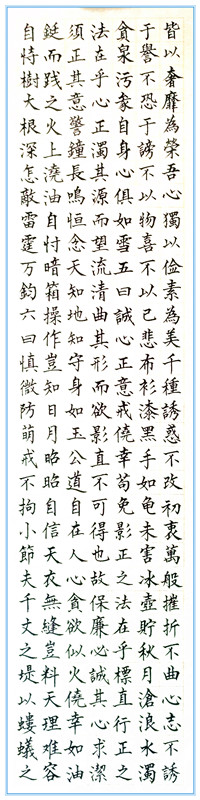 皆以奢靡為榮吾心獨以儉素為美千種誘惑不改初衷萬般摧折不曲心志不誘
于譽不恐于謗不以物喜不以己悲布衫漆黑手如龟未害冰壺貯秋月滄浪水濁
貪泉污豢自身心俱如雪五曰誠心正意戒僥幸苟免影正之法在乎標直行正之
法在乎心正濁其源而望流清曲其形而欲影直不可得也故保廉必誠其心求潔
須正其意警鐘長鳴恒念天知地知守身如玉公道自在人心貪欲似火僥幸如油
鋌而踐之火上澆油自忖暗箱操作豈知日月昭昭自信天衣無縫豈料天理難容
自恃樹大根深怎敵雷霆万鈞六曰慎微防萌戒不拘小節夫千丈之堤以螻蟻之